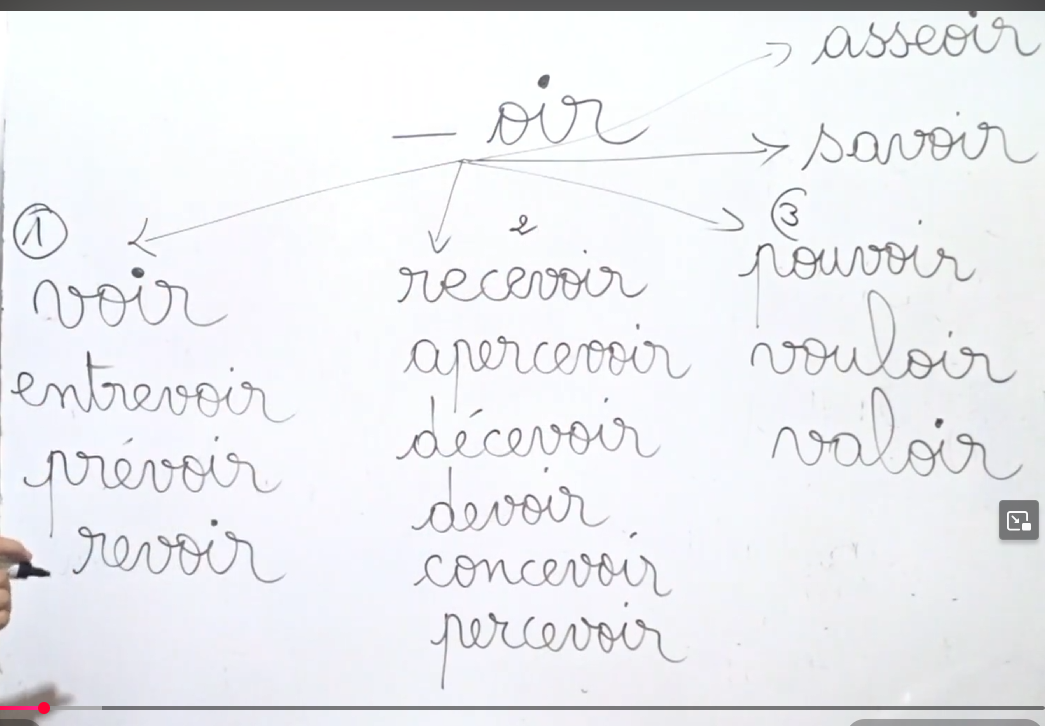 — oir
asseoir
savoir
1
voir
entrevoir
prévoir
revoir
2
recevoir
apercevoir
décevoir
devoir
concevoir
percevoir
3
pouvoir
vouloir
valoir